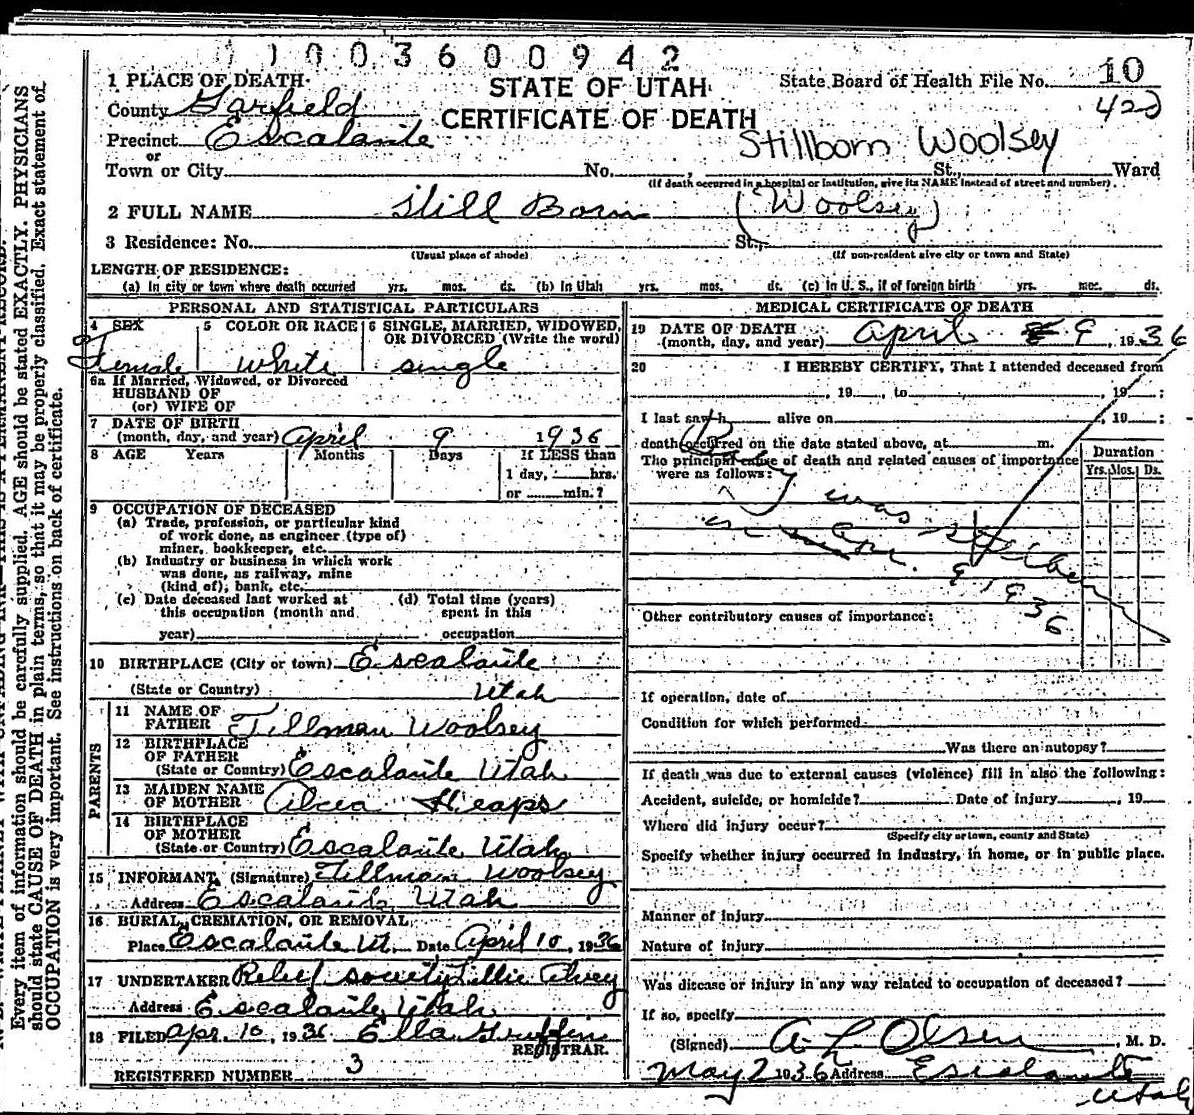 1 1 0 0 3 6 0 0 9 4 2
1 PLACE OF DEATH STATE OF UTAH State Board of Health File No. 10
County Garfield CERTIFICATE OF DEATH 422
Precinct Escalante Stillborn Woolsey
or
Town or City No. , St., Ward
(If death occurred in a hospital or institution, give its NAME instead of street and number).
2 FULL NAME Still Born (Woolsey)
3 Residence: No. St.,
(Usual place of abode) (If non-resident give city or town and State)
LENGTH OF RESIDENCE:
(a) In city or town where death occurred yrs. mos. ds. (b) In Utah yrs. mos. ds. (c) In U. S., if of foreign birth yrs. mos. ds.
PERSONAL AND STATISTICAL PARTICULARS
4 SEX 5 COLOR OR RACE 6 SINGLE, MARRIED, WIDOWED, OR DIVORCED (Write the word)
Female White single
6a If Married, Widowed, or Divorced
HUSBAND OF
(or) WIFE OF
7 DATE OF BIRTH
(month, day, and year) April 9 1936
8 AGE Years Months Days If LESS than
1 day, hrs.
or min.?
9 OCCUPATION OF DECEASED
(a) Trade, profession, or particular kind
of work done, as engineer (type of)
miner, bookkeeper, etc.
(b) Industry or business in which work
was done, as railway, mine
(kind of), bank, etc.
(c) Date deceased last worked at (d) Total time (years)
this occupation (month and spent in this
year) occupation
10 BIRTHPLACE (City or town) Escalante
(State or Country) Utah
PARENTS
11 NAME OF
FATHER Tillman Woolsey
12 BIRTHPLACE
OF FATHER
(State or Country) Escalante Utah
13 MAIDEN NAME
OF MOTHER Alcea Heaps
14 BIRTHPLACE
OF MOTHER
(State or Country) Escalante Utah
15 INFORMANT, (Signature) Tillman Woolsey
Address Escalante Utah
16 BURIAL, CREMATION, OR REMOVAL,
Place Escalante Ut. Date April 10, 1936
17 UNDERTAKER Relief society Lillie Alvey
Address Escalante, Utah
18 FILED Apr. 10, 1936 Ella Griffin
REGISTRAR.
REGISTERED NUMBER 3
MEDICAL CERTIFICATE OF DEATH
19 DATE OF DEATH
(month, day, and year) April 9, 1936
20 I HEREBY CERTIFY, That I attended deceased from
, 19 , to , 19 ;
I last saw h alive on , 19 ;
death occurred on the date stated above, at m.
The principal cause of death and related causes of importance
were as follows:
Duration
Yrs. Mos. Ds.
Baby was stillborn
on Apr. 9, 1936
Other contributory causes of importance:
If operation, date of
Condition for which performed
Was there an autopsy?
If death was due to external causes (violence) fill in also the following:
Accident, suicide, or homicide? Date of injury , 19
Where did injury occur?
(Specify city or town, county and State)
Specify whether injury occurred in industry, in home, or in public place.
Manner of injury
Nature of injury
Was disease or injury in any way related to occupation of deceased?
If so, specify
(Signed) A L Olsen, M. D.
May 2 1936 Address Escalante
Utah
Every item of information should be carefully supplied. AGE should be stated EXACTLY. PHYSICIANS
should state CAUSE OF DEATH in plain terms, so that it may be properly classified. Exact statement of
OCCUPATION is very important. See instructions on back of certificate.